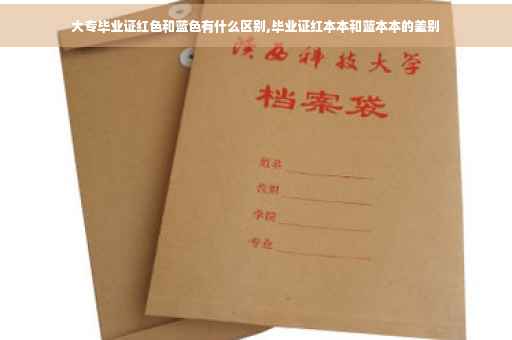 大专毕业证红色和蓝色有什么区别,毕业证红本本和蓝本本的差别
陕西科技大学
档案袋
学院
专业